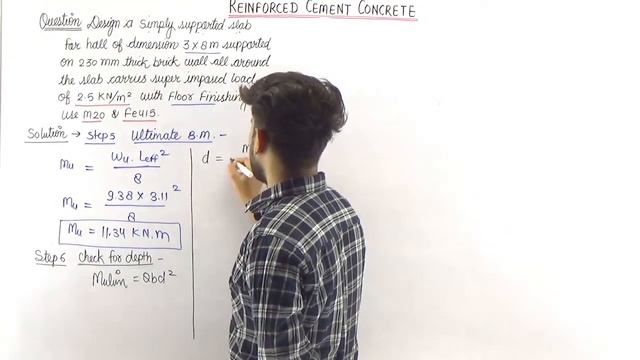 REINFORCED CEMENT CONCRETE
Question Design a Simply supported slab
For hall of dimension 3 x 8m supported
on 230 mm thick brick wall all around
the slab carries super imposed load
of 2.5 KN/m² with Floor Finishin
Use M20 & Fe415.
Solution → Step5 Ultimate B.M. -
Mu = Wu. Leff² / 8
Mu = 9.38 x 3.11² / 8
Mu = 11.34 KN.m
Step6 Check for depth -
Mulim = Qbd²
d =